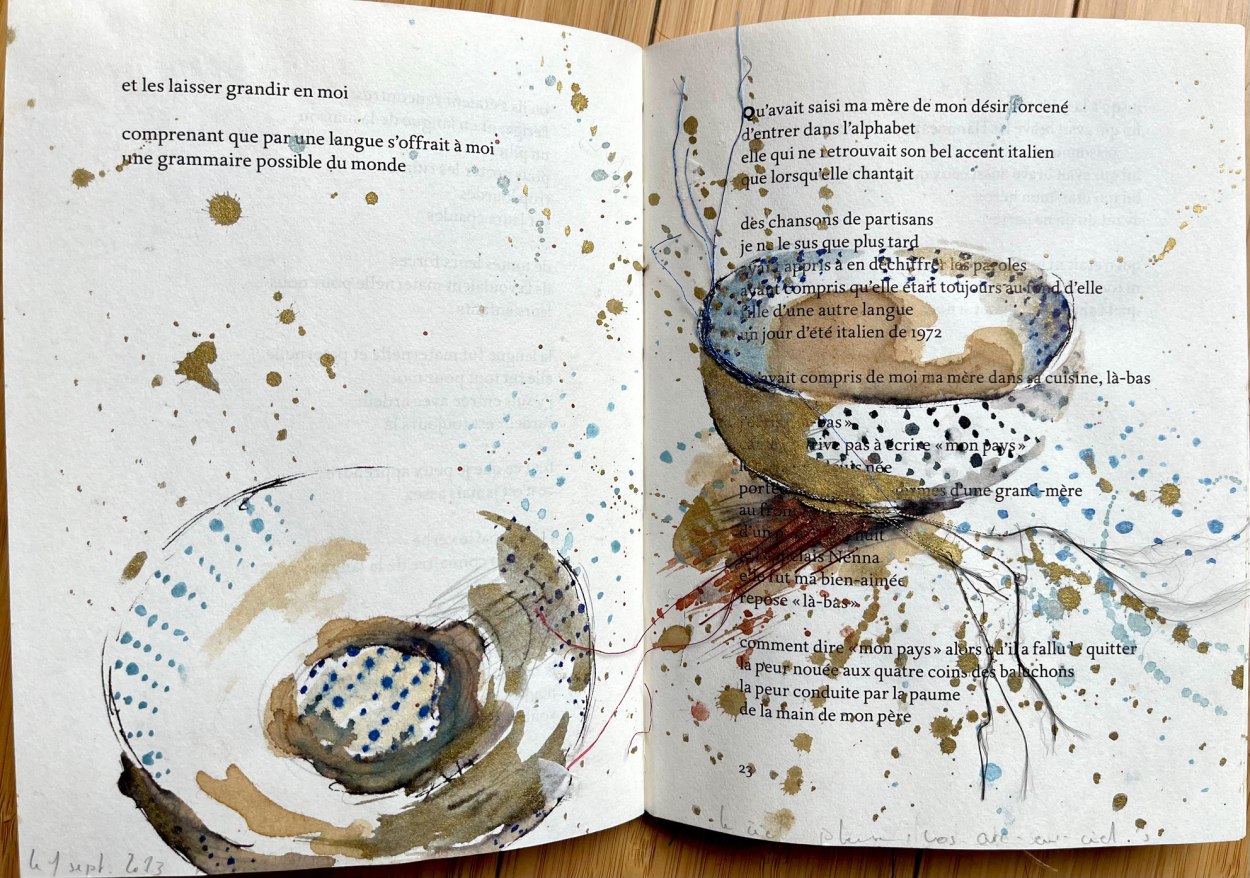 et les laisser grandir en moi
comprenant que par une langue s’offrait à moi
une grammaire possible du monde
le 1 sept. 2023
Qu’avait saisi ma mère de mon désir forcené
d’entrer dans l’alphabet
elle qui ne retrouvait son bel accent italien
que lorsqu’elle chantait
des chansons de partisans
je ne le sus que plus tard
ayant appris à en déchiffrer les paroles
ayant compris qu’elle était toujours au fond d’elle
fille d’une autre langue
un jour d’été italien de 1972
avait compris de moi ma mère dans sa cuisine, là-bas
bas »
pas à écrire « mon pays »
née
d’une grand-mère
au
d’un
Nenna
elle fut ma bien-aimée
repose « là-bas »
comment dire « mon pays » alors qu’il a fallu le quitter
la peur nouée aux quatre coins des baluchons
la peur conduite par la paume
de la main de mon père
23